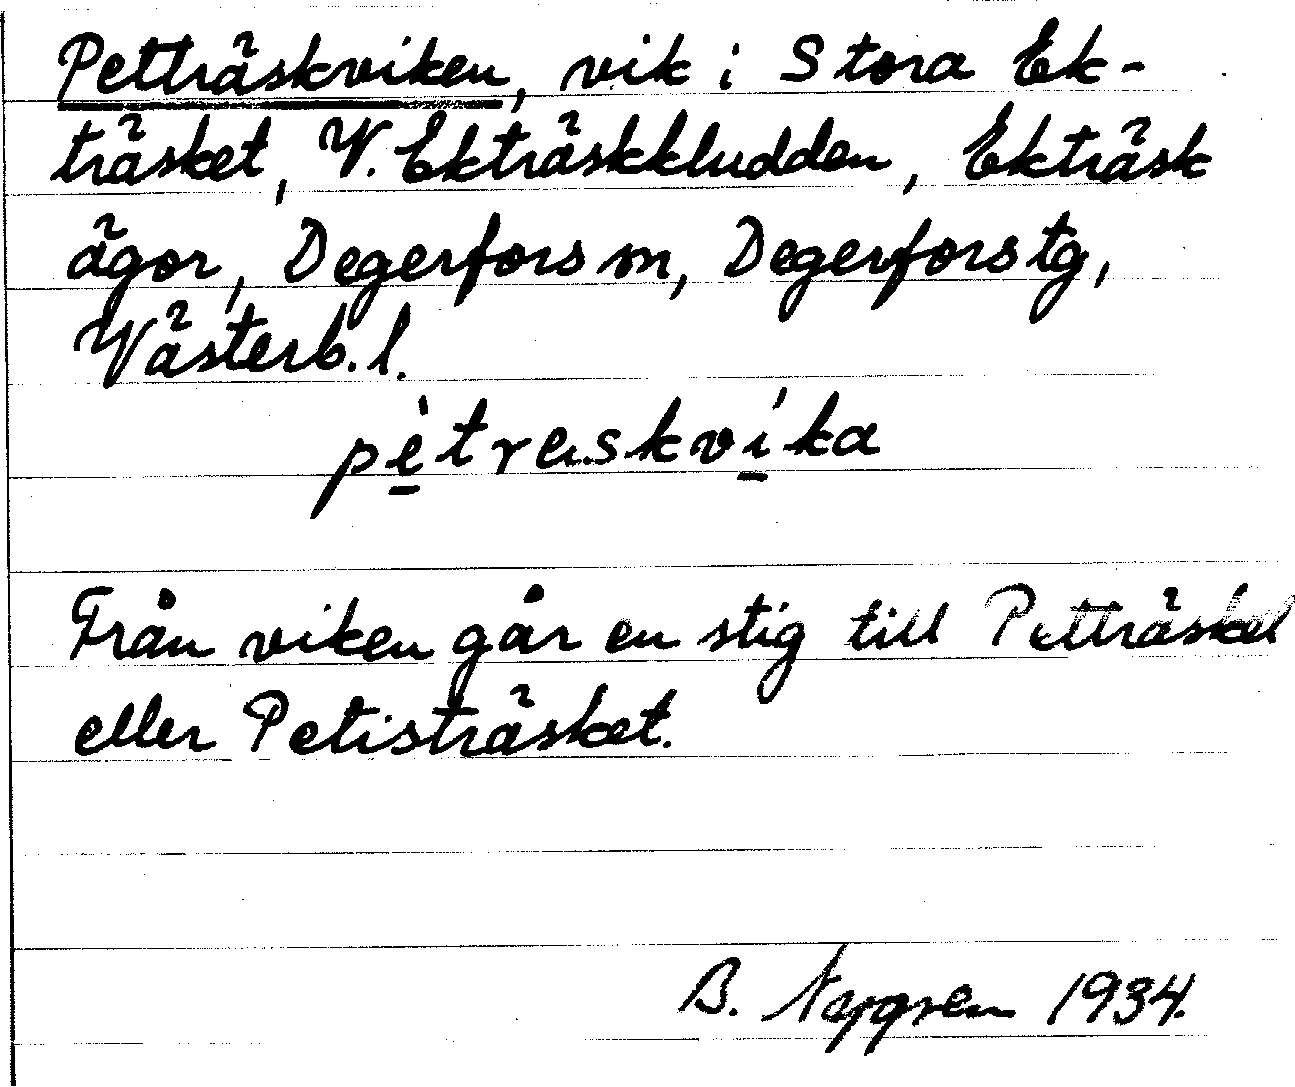 Petträskviken, vik i Stora Ek-
träsket, V. Ekträskkludden, Ekträsk
ägor, Degerfors sn, Degerfors tg,
Västerb. l.
pètreskvíka
Från viken går en stig till Petträsket
eller Petisträsket.
B. 1934.